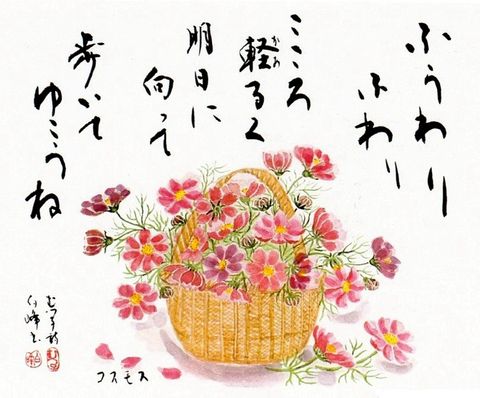 ふうわり
ふわり
こころ
軽るく
明日に
向って
歩いて
ゆこうね
コスモス